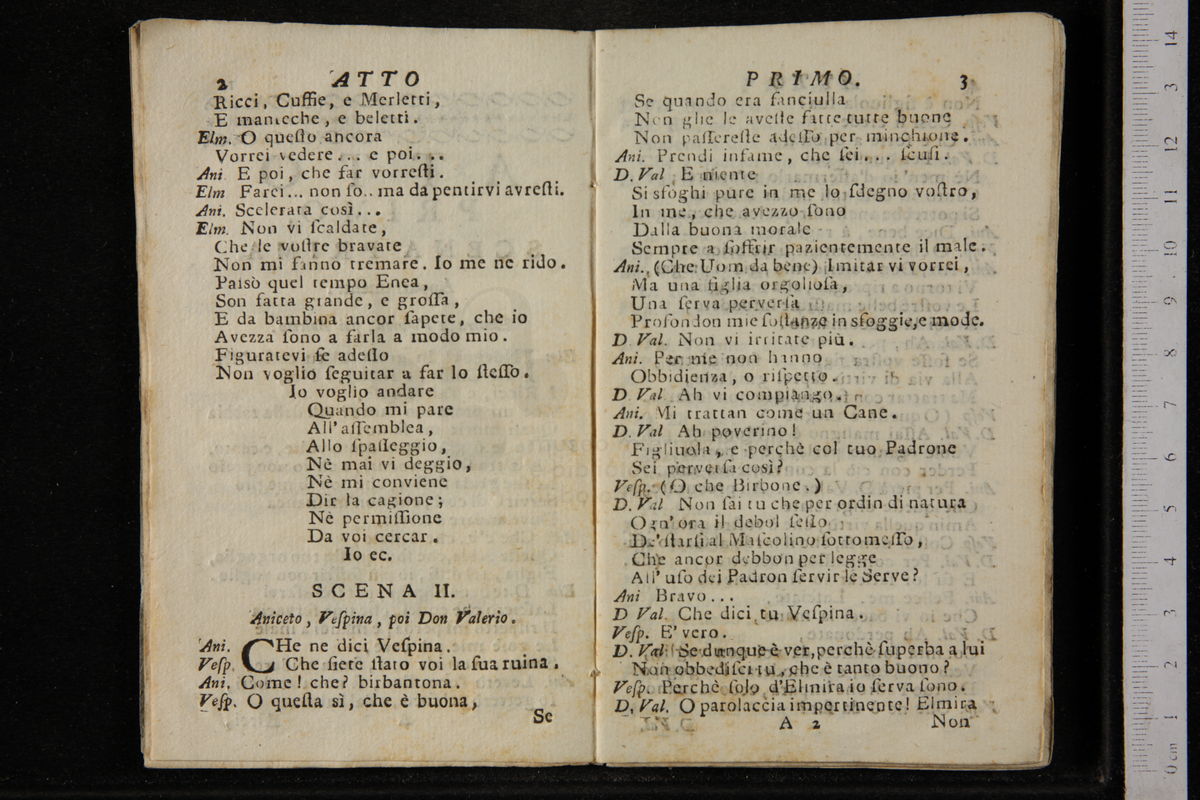 2 ATTO
Ricci, Cuffie, e Merletti,
E maniche, e beletti.
Elm. O queſto ancora
Vorrei vedere... e poi...
Ani E poi, che far vorreſti.
Elm Farei... non ſo.. ma da pentirvi avreſti.
Ani. Scelerata così...
Elm. Non vi ſcaldate,
Che le voſtre bravate
Non mi fanno tremare. Io me ne rido.
Paisò quel tempo Enea,
Son fatta grande, e groſſa,
E da bambina ancor ſapete, che io
Avezza ſono a farla a modo mio.
Figuratevi ſe adeſſo
Non voglio ſeguitar a far lo ſteſſo.
Io voglio andare
Quando mi pare
All'aſſemblea,
Allo ſpaſſeggio,
Nè mai vi deggio,
Nè mi conviene
Dir la cagione;
Nè permiſſione
Da voi cercar.
Io ec.
SCENA II.
Aniceto, Veſpina, poi Don Valerio.
Ani. CHe ne dici Veſpina.
Veſp. Che ſiete ſtato voi la ſua ruina.
Ani. Come! che? birbantona.
Veſp. O queſta sì, che è buona,
Se
PRIMO. 3
Se quando era fanciulla
Non glie le aveſte fatte tutte buone
Non paſſereſte adeſſo per minchione.
Ani. Prendi infame, che ſei... ſcuſi.
D. Val. E niente
Si sfoghi pure in me lo ſdegno voſtro,
In me, che avezzo ſono
Dalla buona morale
Sempre a ſoffrir pazientemente il male.
Ani. (Che Uom da bene) Imitar vi vorrei,
Ma una figlia orgolioſa,
Una ſerva perverſa
Profondon mie ſoſtanze in sfoggie, e mode.
D. Val. Non vi irritate più.
Ani. Per me non hanno
Obbidienza, o riſpetto.
D. Val Ah vi compiango.
Ani. Mi trattan come un Cane.
D. Val Ah poverino!
Figliuola, e perchè col tuo Padrone
Sei perverſa così?
Veſp. (O che Birbone.)
D. Val Non ſai tu che per ordin di natura
Ogn'ora il debol ſeſſo
De' ſtarſi al Maſcolino ſottomeſſo,
Che ancor debbon per legge
All' uſo dei Padron ſervir le Serve?
Ani Bravo...
D Val. Che dici tu Veſpina.
Veſp. E' vero.
D. Val. Se dunque è ver, perchè ſuperba a lui
Non obbediſci tu, che è tanto buono?
Veſp. Perchè ſolo d'Elmira io ſerva ſono.
D. Val. O parolaccia impertinente! Elmira
A 2 Non
0 cm 1 2 3 4 5 6 7 8 9 10 11 12 13 14